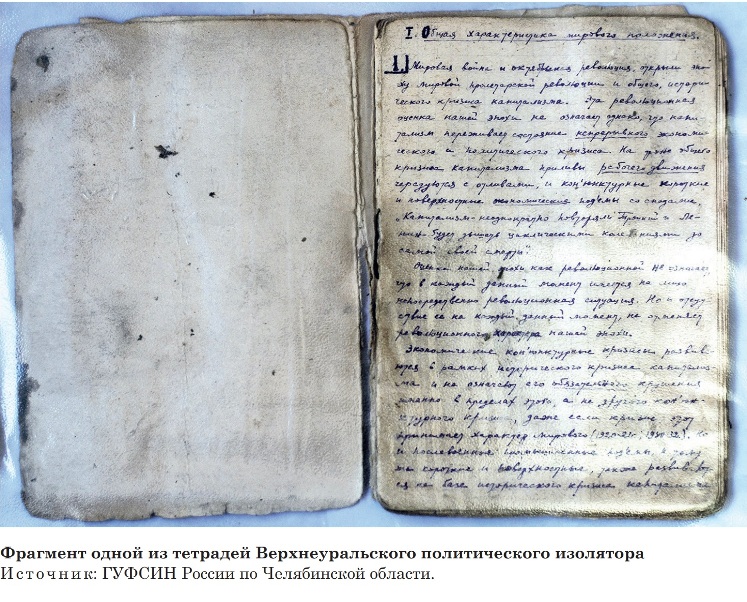 I. Общая характеристика мирового положения.
1.) Мировая война и октябрьская революция открыли эпо-
ху мировой пролетарской революции и общего, истори-
ческого кризиса капитализма. Эта революционная
оценка нашей эпохи не означает однако, что капи-
тализм переживает состояние непрерывного экономи-
ческого и политического кризиса. На фоне общего
кризиса капитализма приливы рабочего движения
чередуются с отливами, и кон'юнктурные короткие
и поверхностные экономические подъемы со спадами.
„Капитализм - неоднократно повторяли Троцкий и Ле-
нин - будет двигаться циклическими колебаниями до
самой своей смерти".
Оценка нашей эпохи, как революционной не означает,
что в каждый данный момент имеется на лицо
непосредственно революционная ситуация. Но и отсут-
ствие ее на каждый данный момент, не отменяет
революционного характера нашей эпохи.
Экономические кон'юнктурные кризисы развив-
ются в рамках исторического кризиса капитализ-
ма и не означают его обязательного крушения
именно в пределах этого, а не другого кон'юн-
ктурного кризиса, даже если кризис этот
принимает характер мирового
и послевоенные подъемы, к тому
же короткие и поверхностные, также развивают-
ся на базе исторического кризиса капитализма
Фрагмент одной из тетрадей Верхнеуральского политического изолятора
Источник: ГУФСИН России по Челябинской области.